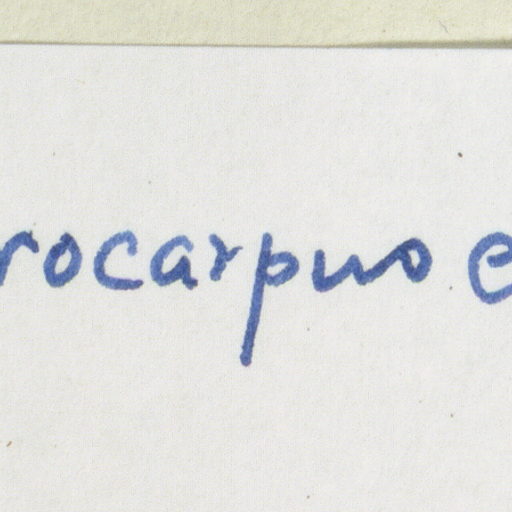 rocarpus e